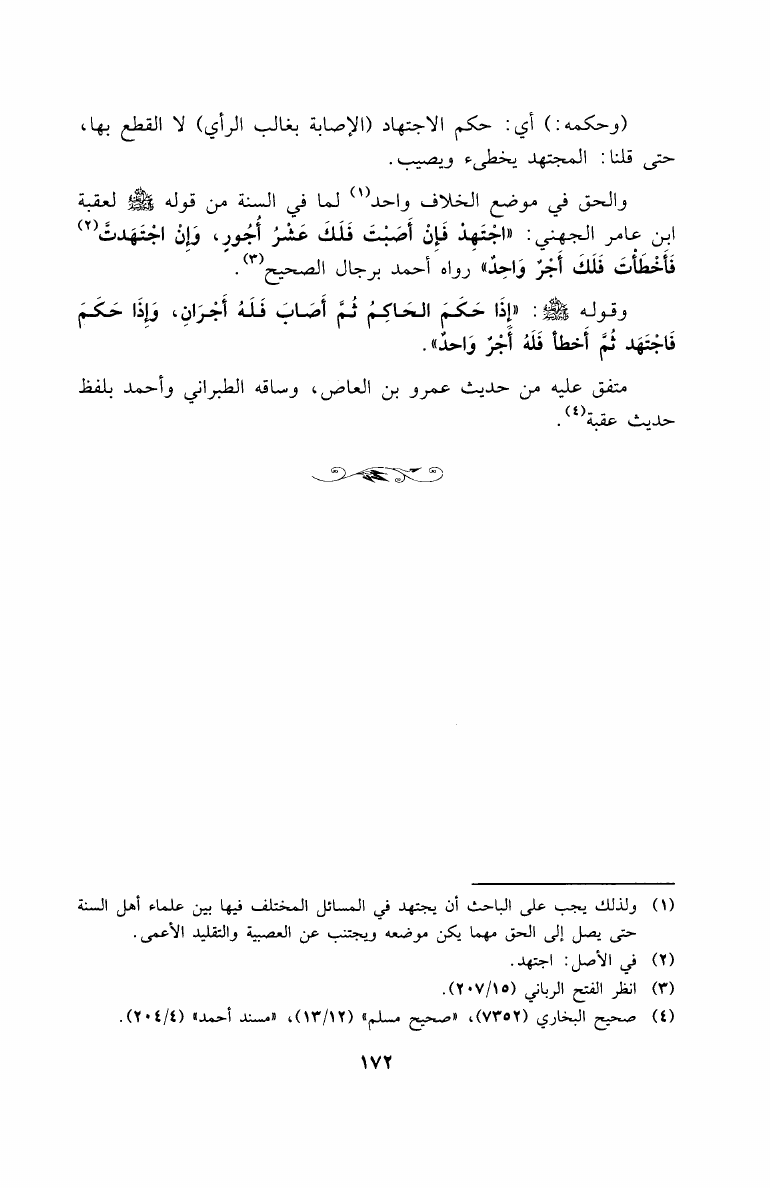 (وحكمه:) أي: حكم الاجتهاد (الإصابة بغالب الرأي) لا القطع بها،
حتى قلنا: المجتهد يخطىء ويصيب.
والحق في موضع الخلاف واحد(١) لما في السنة من قوله ﷺ لعقبة
ابن عامر الجهني: «اجْتَهِدْ فَإِنْ أَصَبْتَ فَلَكَ عَشْرُ أُجُورٍ، وَإِنْ اجْتَهَدتَّ(٢)
فَأَخْطَأْتَ فَلَكَ أَجْرٌ وَاحِدٌ» رواه أحمد برجال الصحيح(٣).
وقوله ﷺ: «إِذَا حَكَمَ الحَاكِمُ ثُمَّ أَصَابَ فَلَهُ أَجْرَانِ، وَإِذَا حَكَمَ
فَاجْتَهَد ثُمَّ أخطأ فَلَهُ أَجْرٌ وَاحدٌ».
متفق عليه من حديث عمرو بن العاص، وساقه الطبراني وأحمد بلفظ
حديث عقبة(٤).
(١) ولذلك يجب على الباحث أن يجتهد في المسائل المختلف فيها بين علماء أهل السنة
حتى يصل إلى الحق مهما يكن موضعه ويجتنب عن العصبية والتقليد الأعمى.
(٢) في الأصل: اجتهد.
(٣) انظر الفتح الرباني (٢٠٧/١٥).
(٤) صحيح البخاري (٧٣٥٢)، «صحيح مسلم» (١٣/١٢)، «مسند أحمد» (٢٠٤/٤).
١٧٢